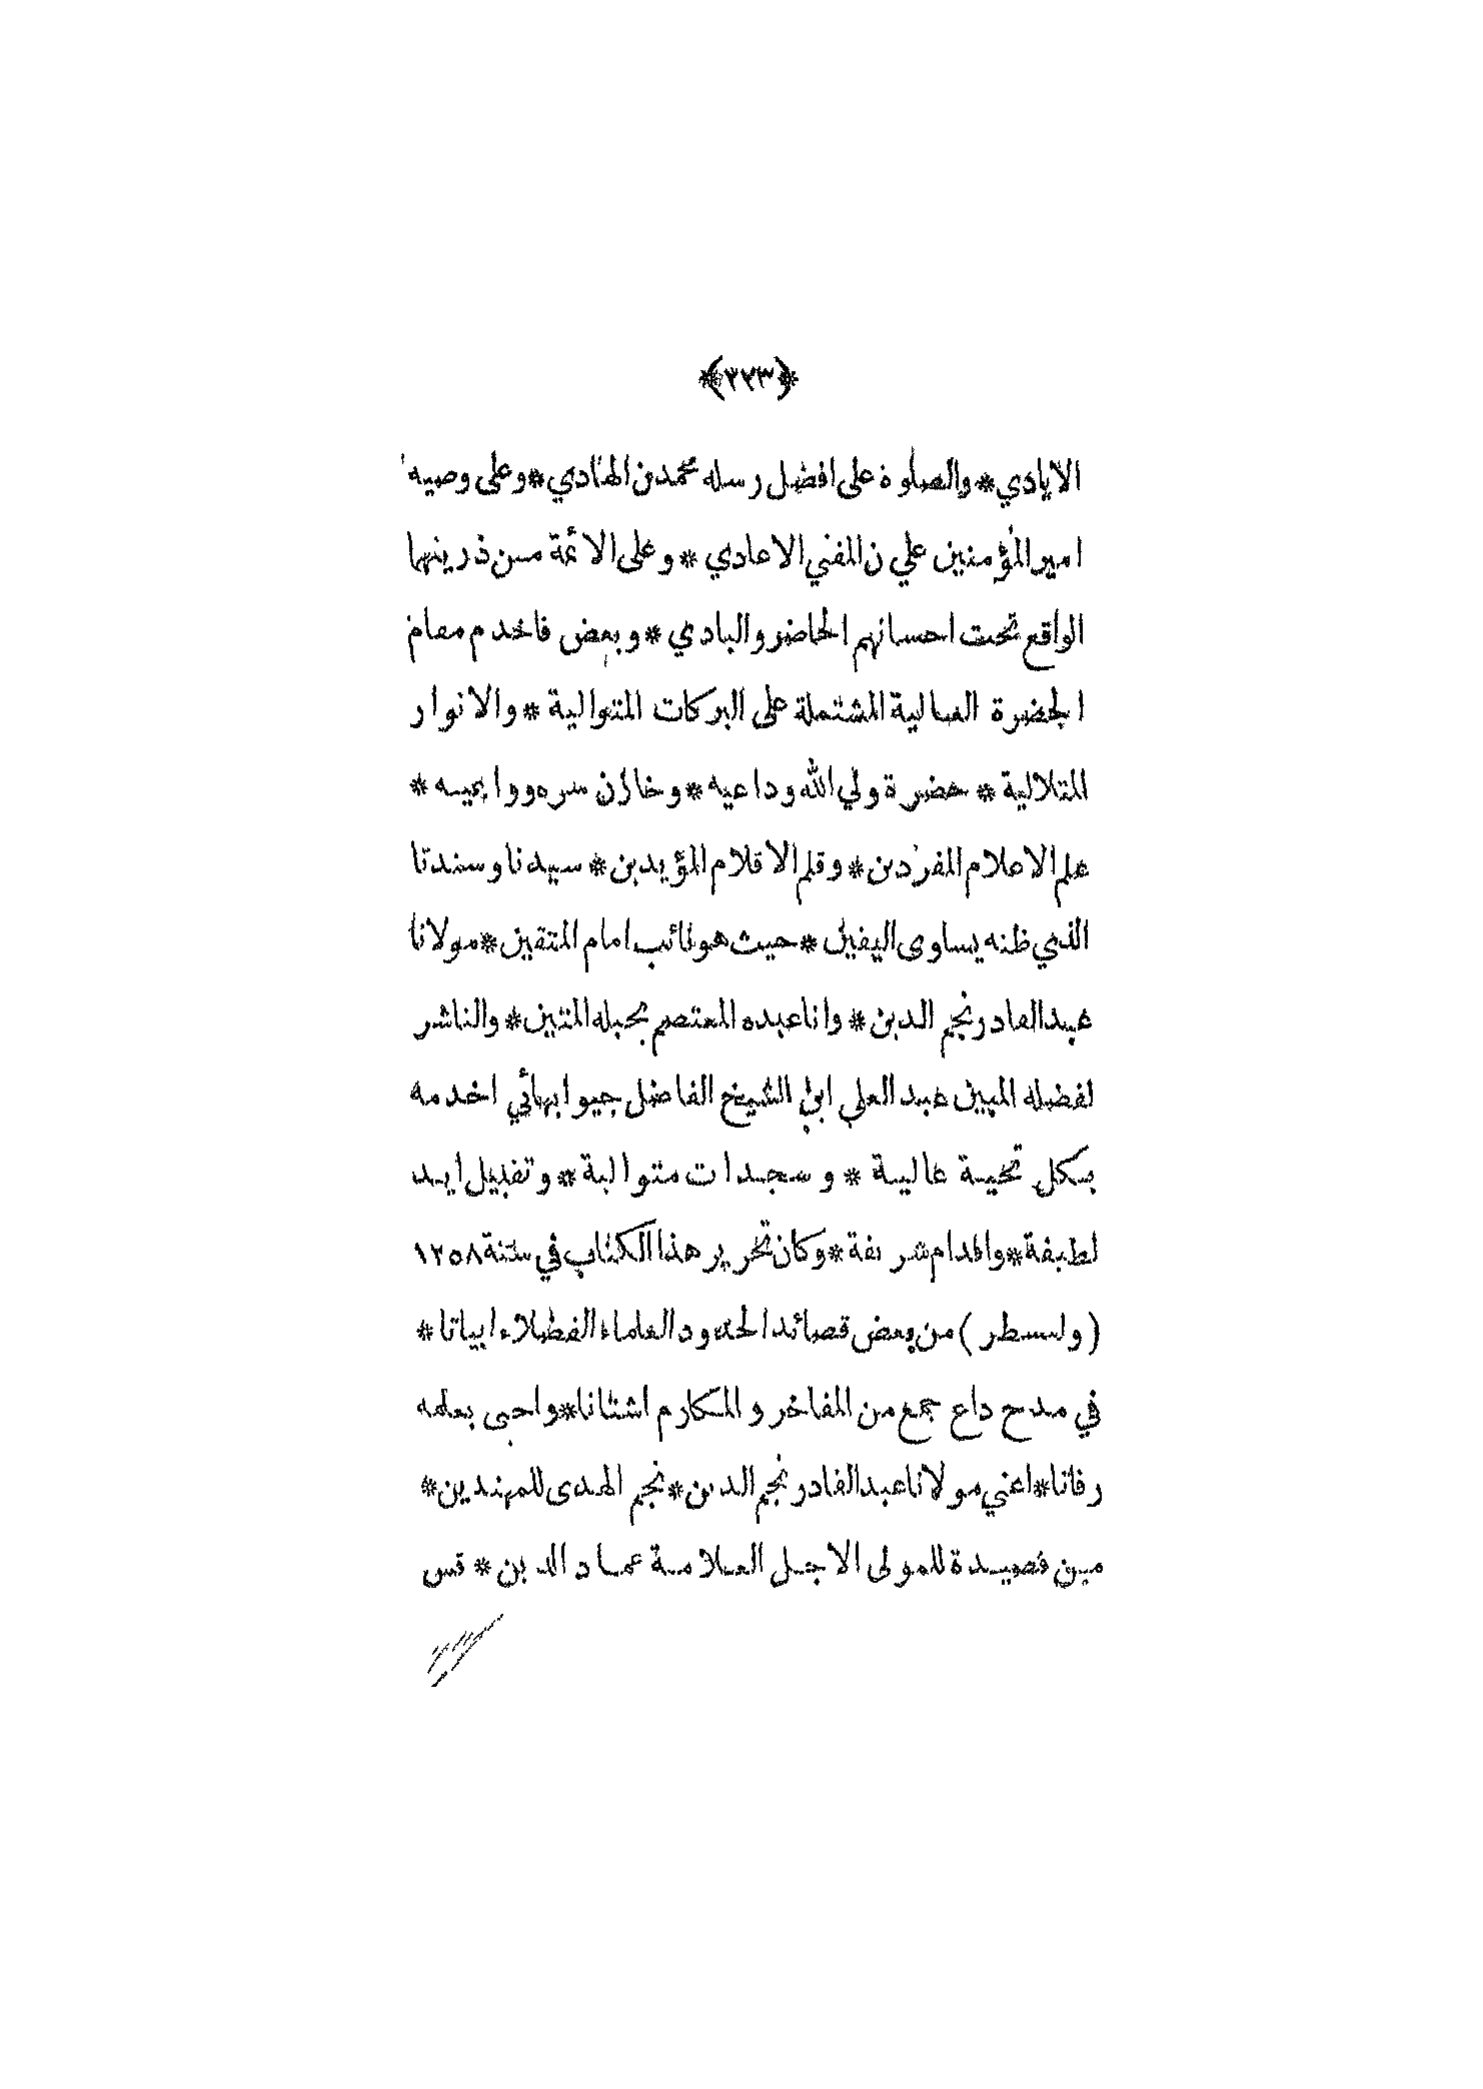 ﴿٣٢٣﴾
الايادي * والصلوة على افضل رسله محمدن الهادي * وعلى وصيه
امير المؤمنين علي ن المفني الاعادي * وعلى الائمة من ذريتهما
الواقع تحت احسانهم الحاضر والبادي * وبعض فاخدم مقام
الحضرة العالية المشتملة على البركات المتوالية * والانوار
المتلالية * حضرة ولي الله وداعيه * وخازن سره وواعيه *
علم الاعلام المفردين * وقلم الاقلام المؤيدين * سيدنا وسندنا
الذي ظنه يساوى اليقين * حيث هو نائب امام المتقين * مولانا
عبد القادر نجم الدين * وانا عبده المعتصم بحبله المتين * والناشر
لفضله المبين عبد العلي ابن الشيخ الفاضل جيوابهائي اخدمه
بكل تحية عالية * وسجدات متوالية * وتقبيل ايد
لطيفة * واقدام شريفة * وكان تحرير هذا الكتاب في سنة ١٢٥٨
(ولنسطر) من بعض قصائد الحدود العلماء الفضلاء ابياتا *
في مدح داع جمع من المفاخر والمكارم اشتاتا * واحيى بعلمه
رفاتا * اعني مولانا عبد القادر نجم الدين * نجم الهدى للمهتدين *
من قصيدة للمولى الاجل العلامة عماد الدين * قس